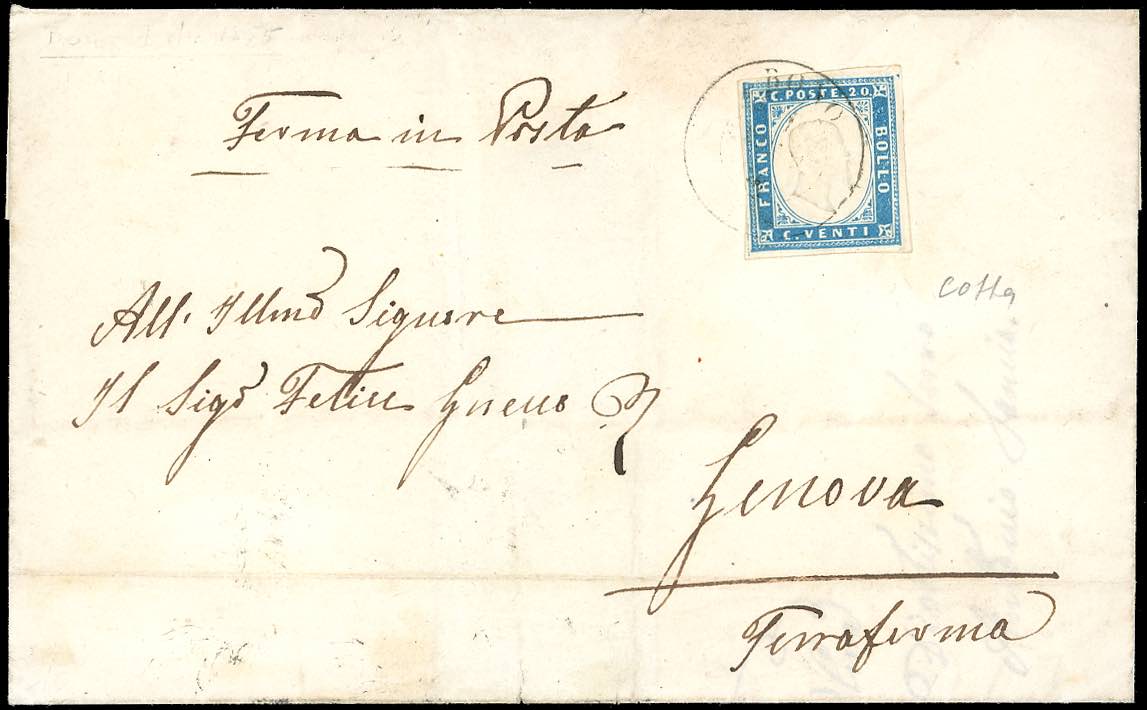 Ferma in Posta
C. POSTE 20.
FRANCO
BOLLO
C. VENTI
All. Illmo Signore
Il Sigr Felice
Genova
Terraferma